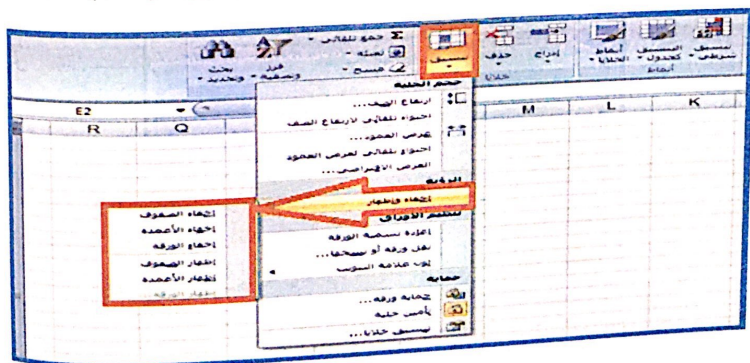 تنسيق شرطي
التنسيق كجدول
أنماط الخلايا
أنماط
إدراج
حذف
تنسيق
خلايا
جمع تلقائي
تعبئة
مسح
فرز وتصفية
بحث وتحديد
E2
R Q M L K
حجم الخلية
ارتفاع الصف...
احتواء تلقائي لارتفاع الصف
عرض العمود...
احتواء تلقائي لعرض العمود
العرض الافتراضي...
الرؤية
إخفاء وإظهار
تنظيم الأوراق
إعادة تسمية الورقة
نقل ورقة أو نسخها...
لون علامة التبويب
حماية
حماية ورقة...
تأمين خلية
تنسيق خلايا...
إخفاء الصفوف
إخفاء الأعمدة
إخفاء الورقة
إظهار الصفوف
إظهار الأعمدة
إظهار الورقة